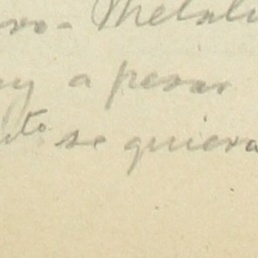 ro- Metalu
y a pesar
to se quiera